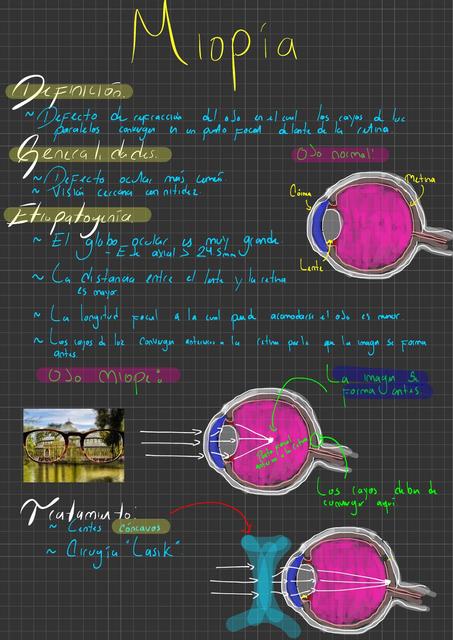 Miopía
Definición:
~ Defecto de refracción del ojo en el cual los rayos de luz
paralelos convergen en un punto focal delante de la retina
Generalidades:
Ojo normal:
~ Defecto ocular más común
~ Visión cercana con nitidez.
Retina
Córnea
Lente
Etiopatogenia
~ El globo ocular es muy grande.
- Eje axial > 24.5mm
~ La distancia entre el lente y la retina
es mayor
~ La longitud focal a la cual puede acomodarse el ojo es menor
~ Los rayos de luz convergen anterior a la retina por lo que la imagen se forma
antes.
Ojo Miope:
La imagen se
forma antes
Punto focal
anterior a la retina
Los rayos deben de
converger aquí
Tratamiento:
~ Lentes cóncavos
~ Cirugía "Lasik"